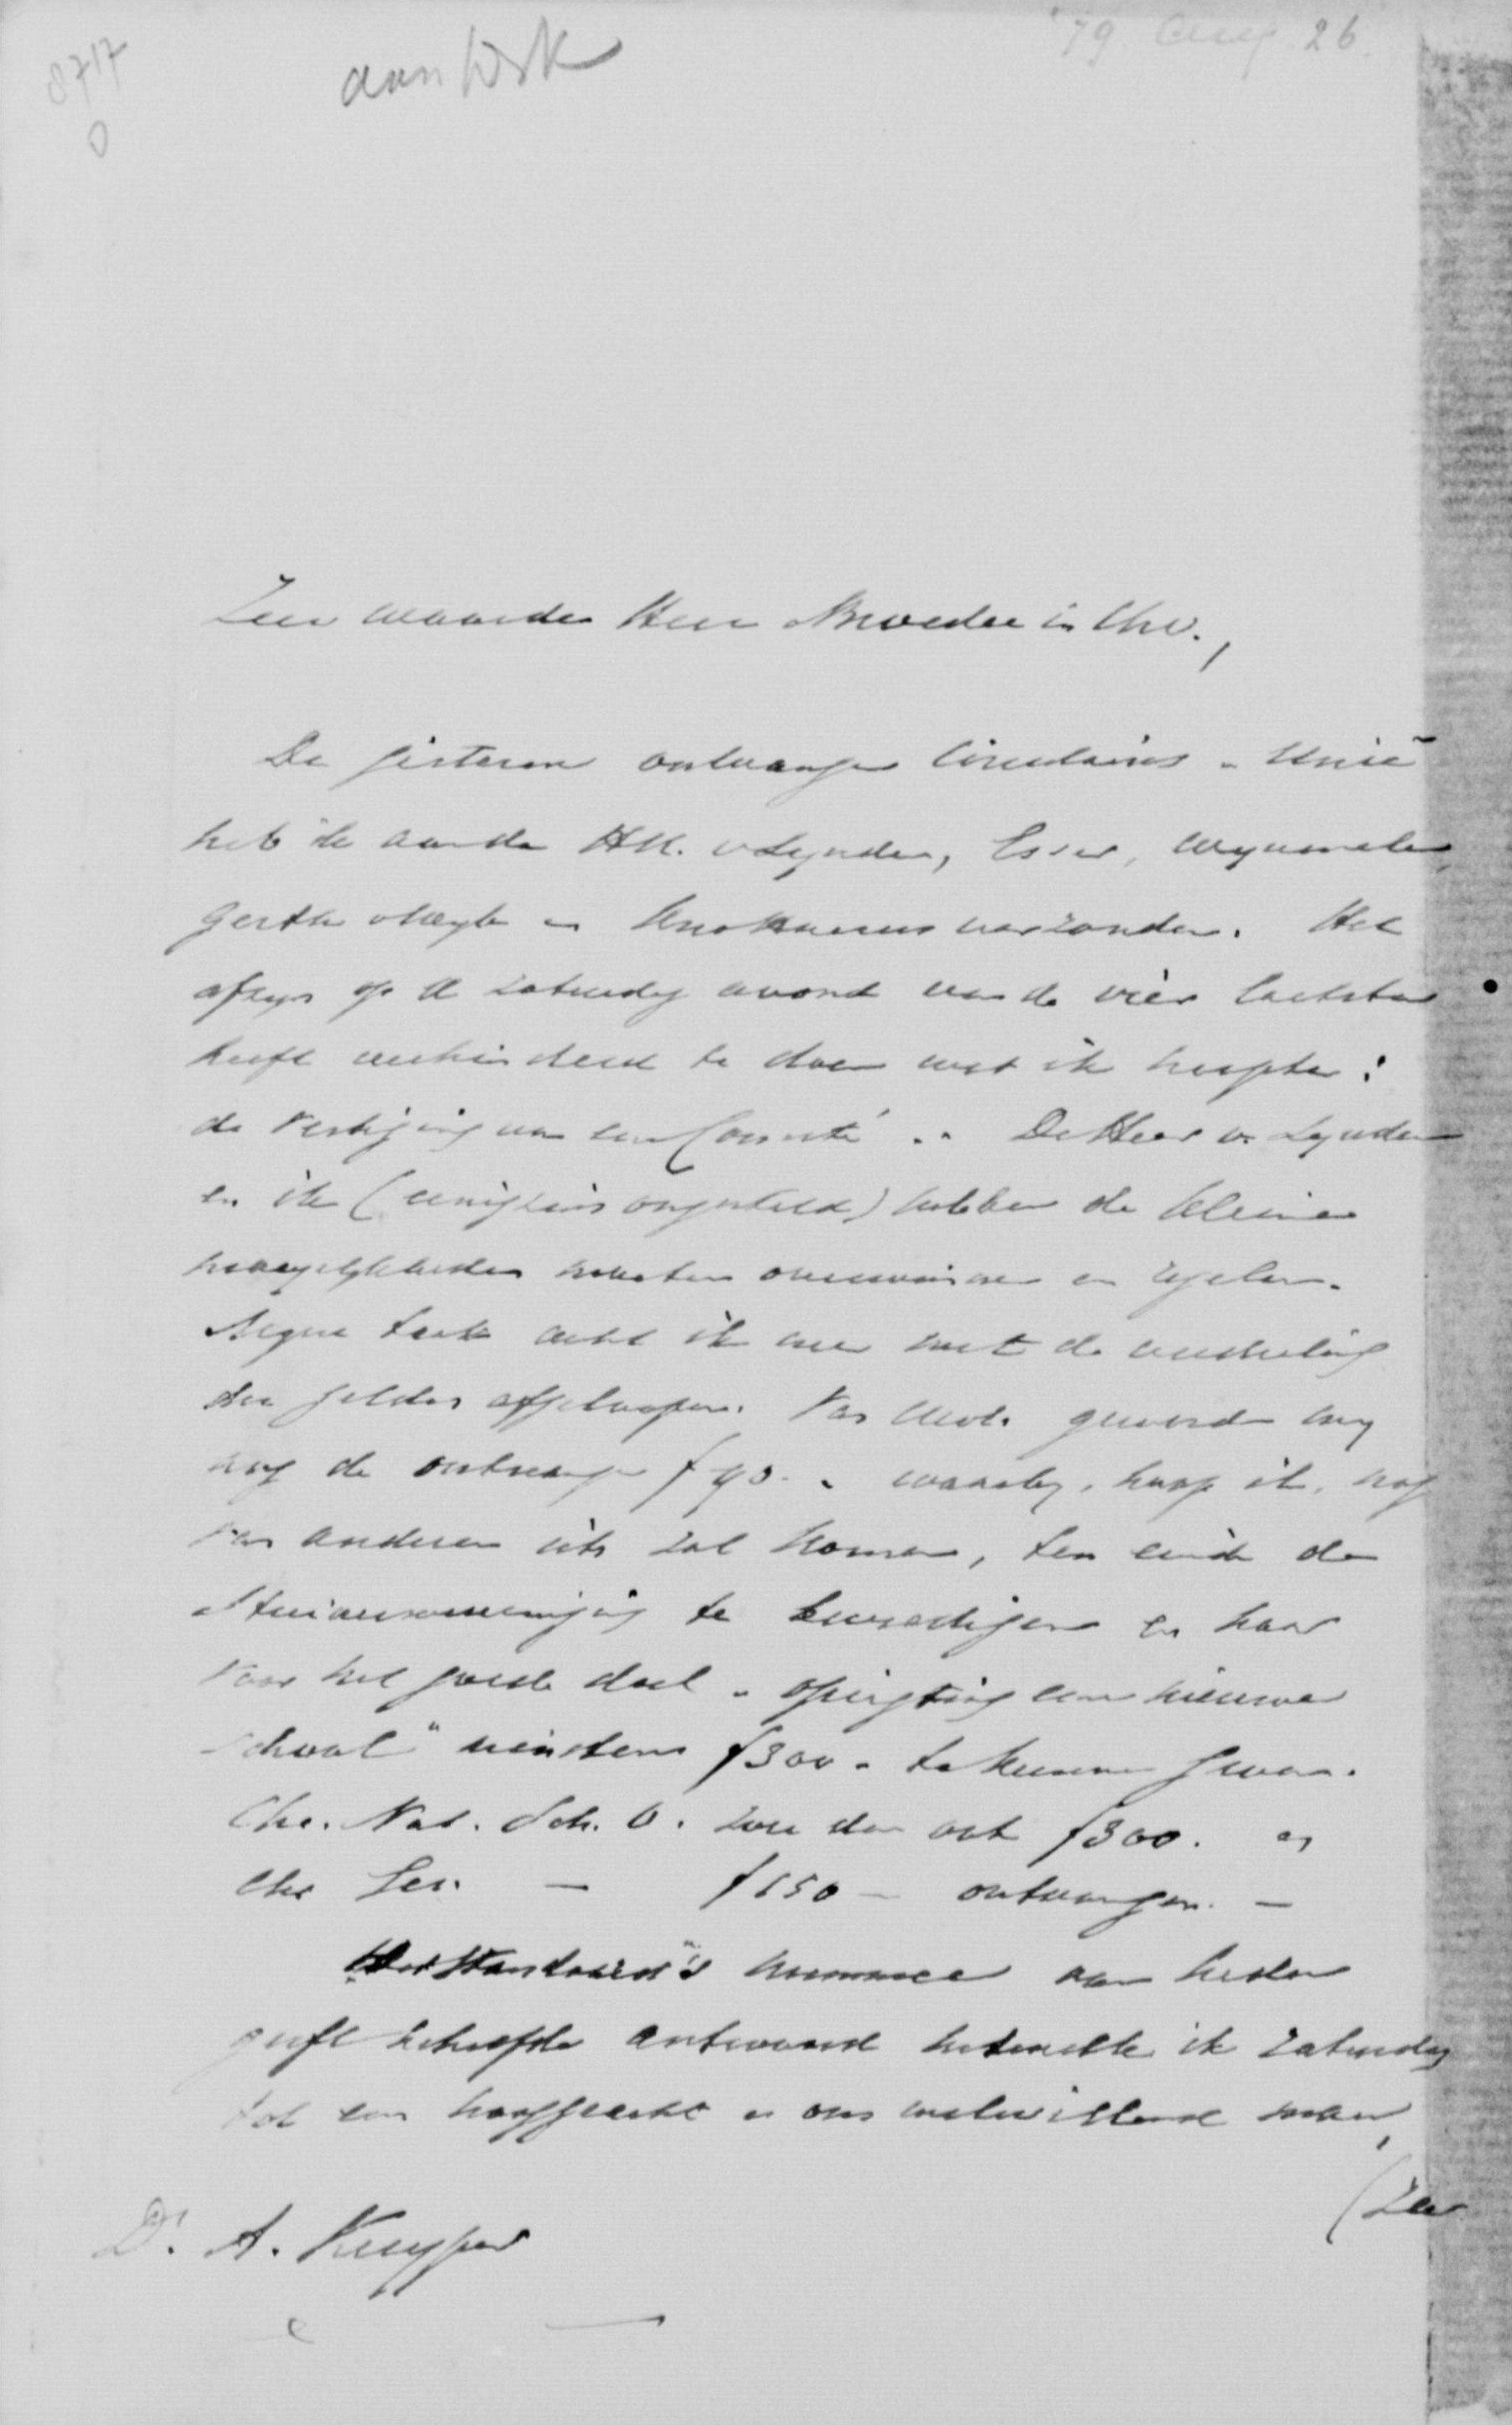 8717
0
'79 Aug. 26.
Zeer waarde Heer & Broeder in Chr.,
De gisteren ontvangen Circulaires - Unie
heb ik aan de HH. v Lynden, Esser, Wynmalen
Gerth v Wyk en verzonden. Het
op de Zaturdag avond van de vier laatsten
heeft verhinderd te doen wat ik hoopte:
de vestiging van een Comité. De Heer v. Lynden
en ik (eenigzins ongesteld) hebben de kleine
moeten overwinnen en regelen.
Mijne taak acht ik nu met de
der gelden afgeloopen. Van gewerd my
nog de ontvangen f 90. - waarby, hoop ik, nog
van anderen iets zal komen, ten einde de
te bevredigen en haar
voor het goede doel "oprigting eener nieuwe
school" minstens f 300 - te kunnen geven.
Chr. Nat. Sch. O. zou dan ook f 300. en
Chr Sem. — f 150 - ontvangen. —
Standaard's nummer van heden
geeft antwoord ik Zaturdag
tot een en ons welwillend man,
(Zeer
Dr. A. Kuyper